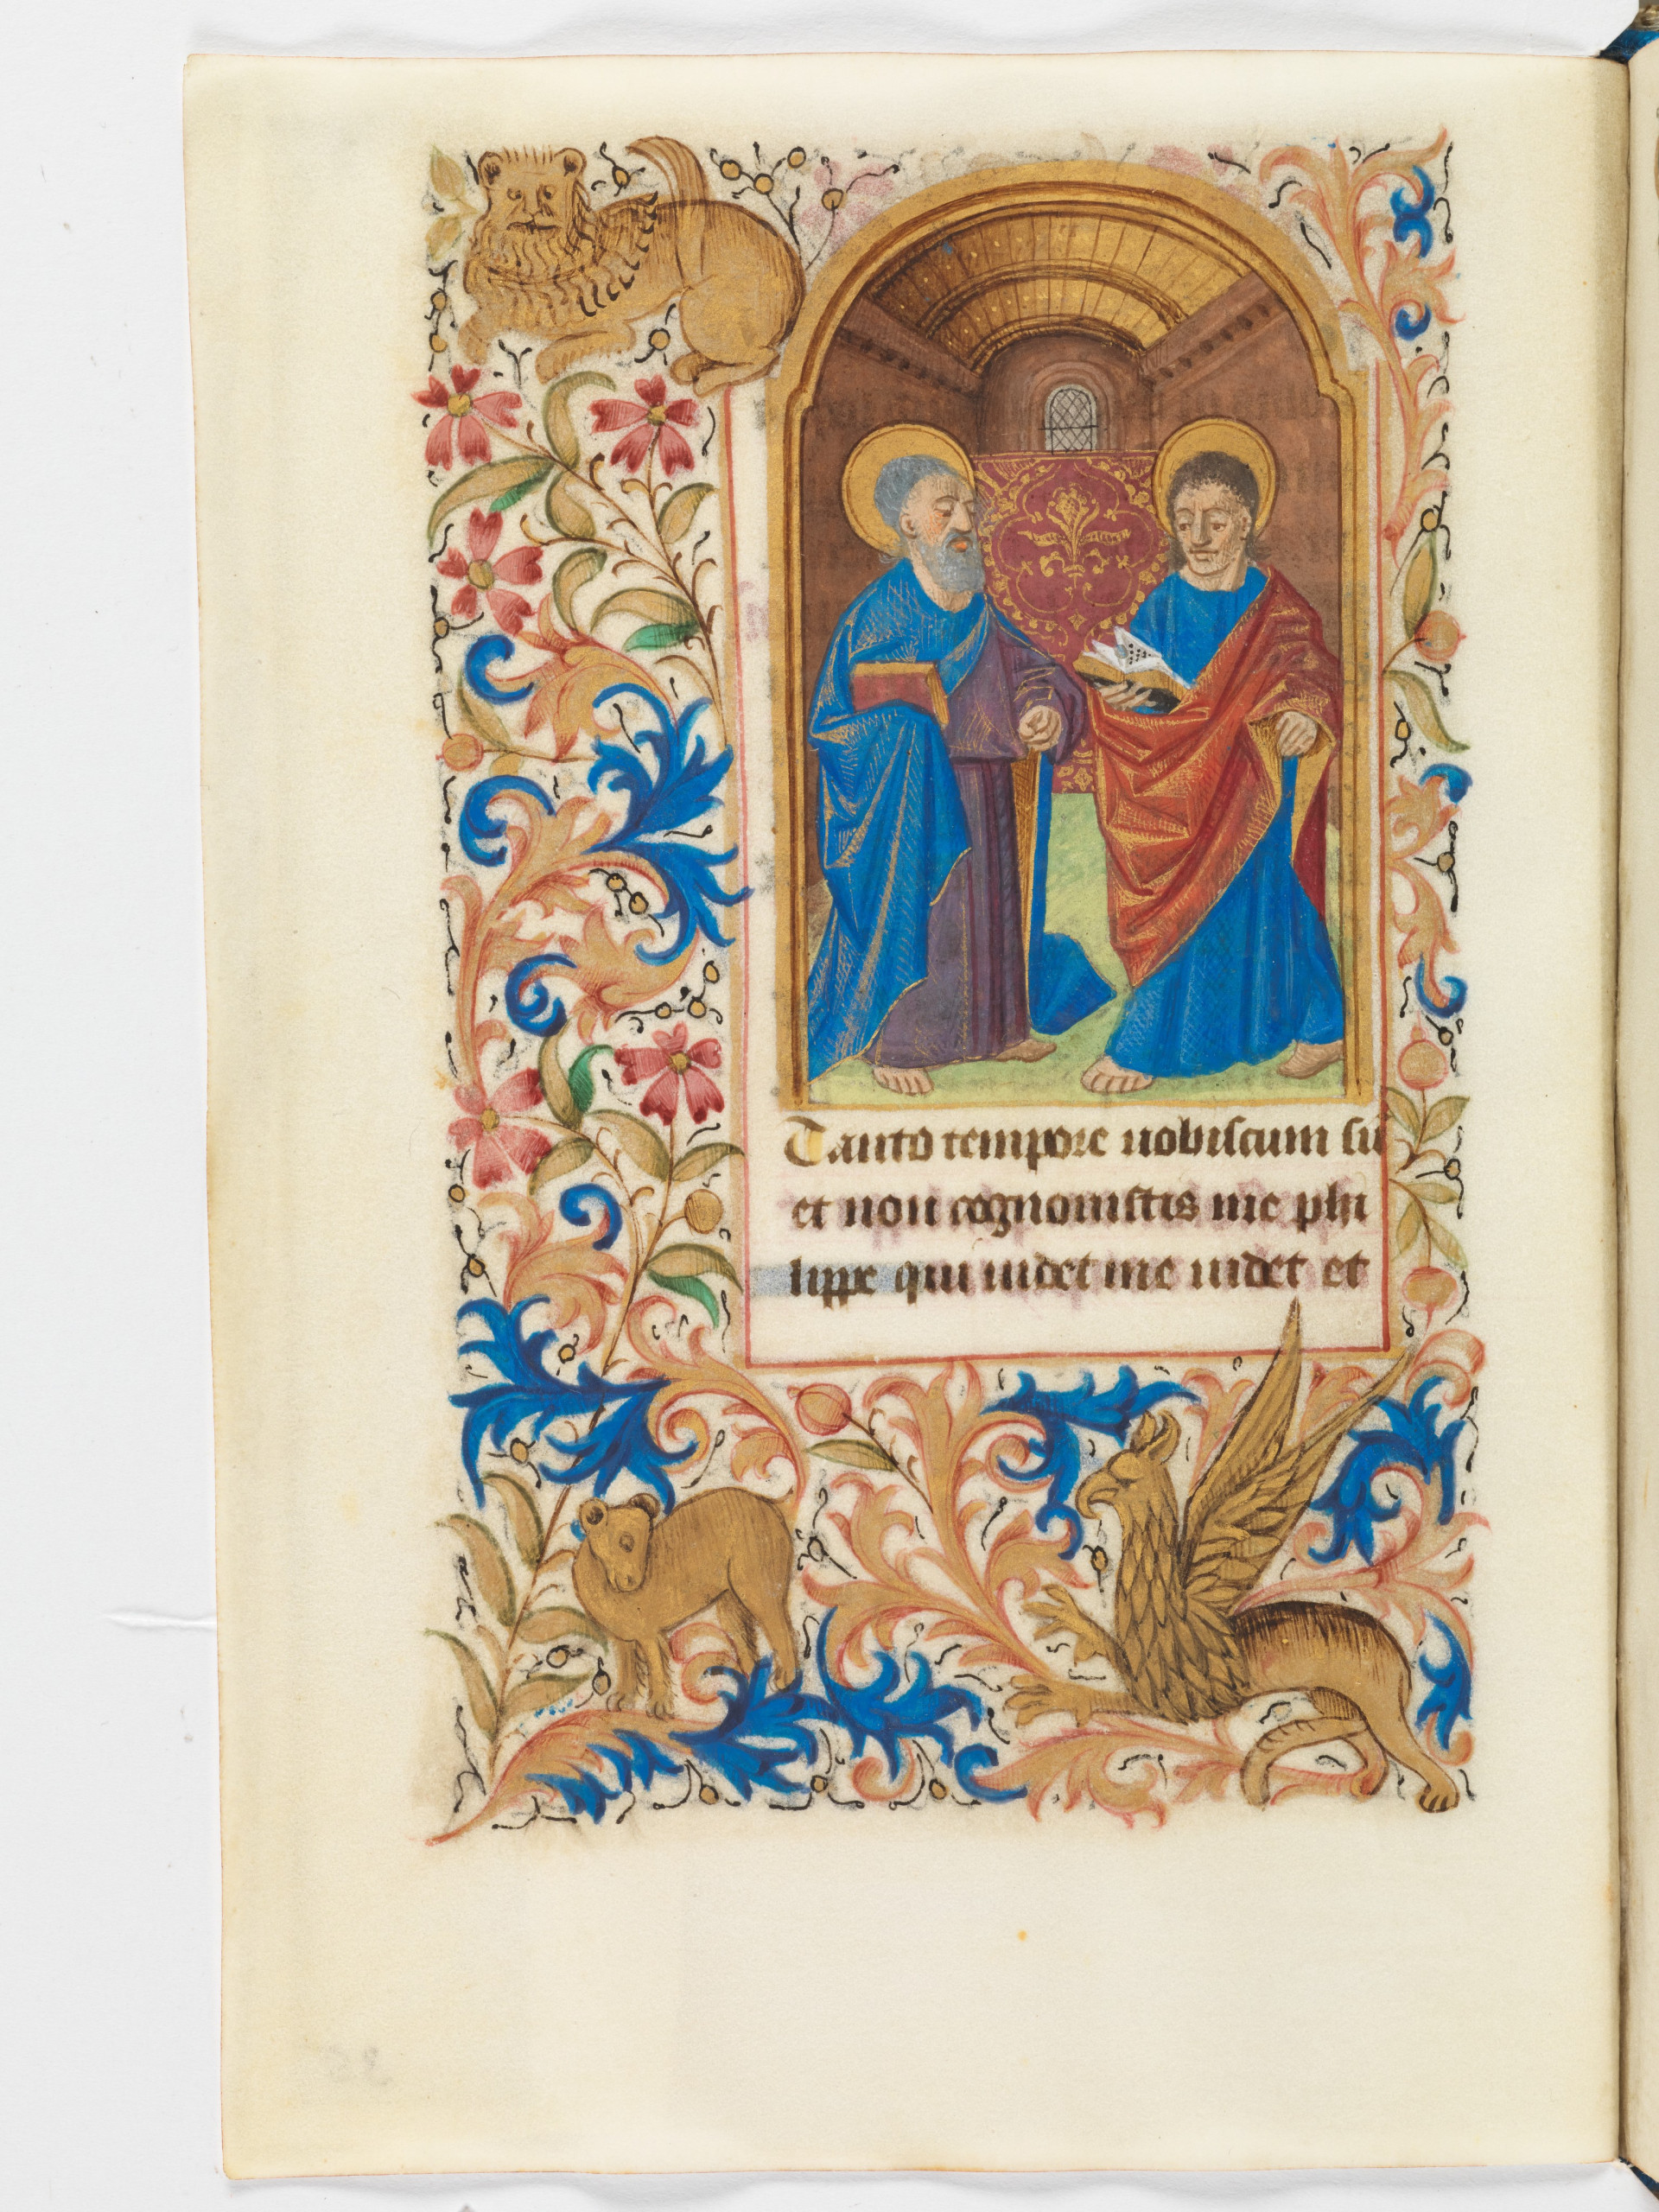 Tanto tempore uobiscum su
et non cognouistis me phi
lippe qui uidet me uidet et